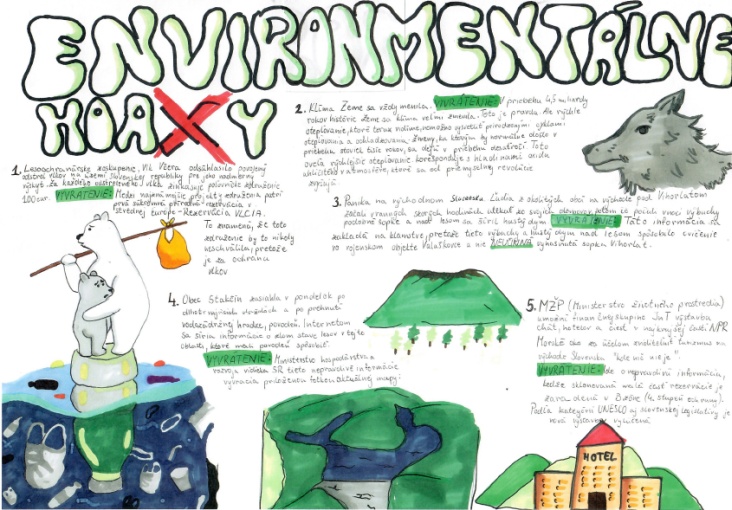 ENVIRONMENTÁLNE
HOAXY
1. Lesoochranárske zoskupenie Vlk Včera odsúhlasilo povolený
odstrel vlkov na území Slovenskej republiky pre ich nadmerný
výskyt. Za každého odstreleného vlka získa poľovnícke združenie
100 eur. VYVRÁTENIE: Medzi najväčšie projekty združenia patrí
prvá súkromná prírodná rezervácia v
strednej Európe - Rezervácia VLČIA.
To znamená, že toto
združenie by to nikdy
neschválilo, pretože
je za ochranu
vlkov
2. Klíma Zeme sa vždy menila. VYVRÁTENIE: V priebehu 4,5 miliardy
rokov histórie Zeme sa klíma veľmi zmenila. Toto je pravda. Ale rýchle
otepľovanie, ktoré teraz vidíme, nemožno vysvetliť prírodnými cyklami
otepľovania a ochladzovania. Zmeny, ku ktorým by normálne došlo v
priebehu stoviek tisíc rokov, sa dejú v priebehu desaťročí. Toto
oveľa rýchlejšie otepľovanie korešponduje s hladinami oxidu
uhličitého v atmosfére, ktoré sa od priemyselnej revolúcie
zvyšujú
3. Panika na východnom Slovensku Ľudia z okolitých obcí na východe pod Vihorlatom
začali v ranných hodinách utekať zo svojich domovov, potom čo počuli vnem výbuchy
podobné sopke a nad lesom sa šíril hustý dym. VYVRÁTENIE: Táto informácia sa
zakladá na klamstve, pretože tieto výbuchy a hustý dym nad lesom spôsobilo cvičenie
vo vojenskom objekte Valaškovce a nie NEUSTÁLA vyhasnutá sopka Vihorlat.
4. Obec Stakčín zasiahla v pondelok po
vodách a po pretrhnutí
vodnej hrádze, povodeň. Internetom
sa šíria informácie o zlom stave lesov v tejto
oblasti, ktoré mali povodeň spôsobiť.
VYVRÁTENIE: Ministerstvo hospodárstva a
rozvoja vidieka SR tieto nepravdivé informácie
vyvracia priloženou fotkou aktuálnej mapy:
5. MŽP (Ministerstvo životného prostredia)
umožní finančnej skupine J&T výstavbu
chát, hotelov a ciest v najkrajšej časti NPR
Morské oko za účelom zveľadiť turizmus na
východe Slovenska "kde nič nie je."
VYVRÁTENIE: Ide o nepravdivú informáciu,
keďže skloňovaná veľká časť rezervácie je
zaradená v 5. zóne (4. stupeň ochrany).
Podľa kategórii UNESCO aj slovenskej legislatívy je
nová výstavba vylúčená
HOTEL